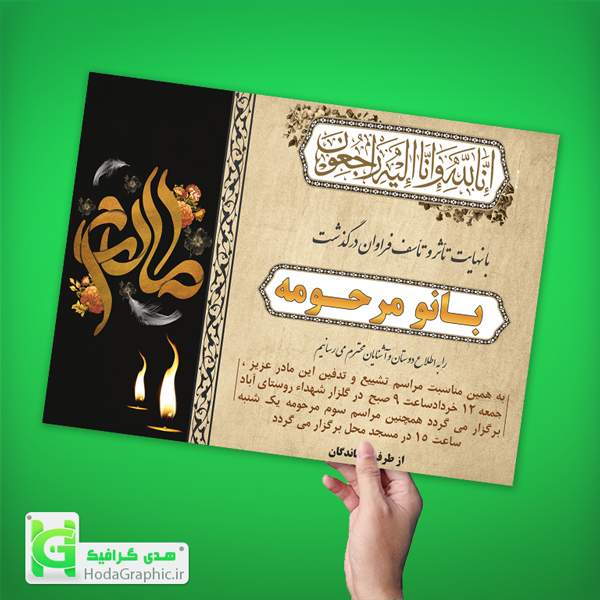 انا لله و انا الیه راجعون
مادرم
بانهایت تأثر و تأسف فراوان درگذشت
بانو مرحومه
را به اطلاع دوستان و آشنایان محترم می رسانیم
به همین مناسبت مراسم تشییع و تدفین این مادر عزیز ،
جمعه ۱۲ خردادساعت ۹ صبح در گلزار شهداء روستای آباد
برگزار می گردد همچنین مراسم سوم مرحومه یک شنبه
ساعت ۱۵ در مسجد محل برگزار می گردد
از طرف ماندگان
هدی گرافیک
HodaGraphic.ir